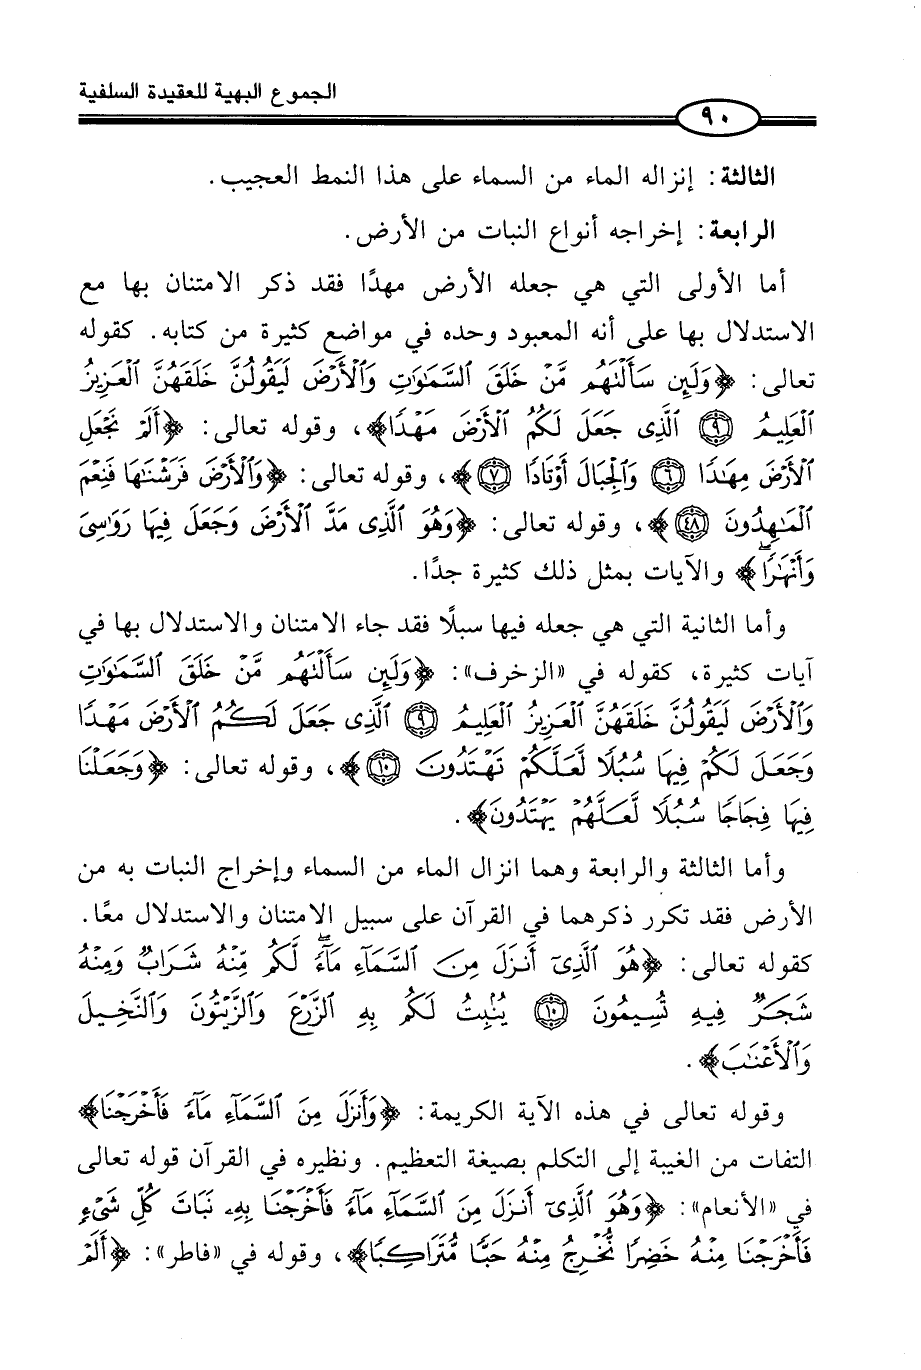 الجموع البهية للعقيدة السلفية
٩٠
الثالثة: إنزاله الماء من السماء على هذا النمط العجيب.
الرابعة: إخراجه أنواع النبات من الأرض.
أما الأولى التي هي جعله الأرض مهدًا فقد ذكر الامتنان بها مع
الاستدلال بها على أنه المعبود وحده في مواضع كثيرة من كتابه. كقوله
تعالى: ﴿وَلَئِن سَأَلْتَهُم مَّنْ خَلَقَ السَّمَٰوَٰتِ وَالْأَرْضَ لَيَقُولُنَّ خَلَقَهُنَّ الْعَزِيزُ
الْعَلِيمُ ۝٩ الَّذِي جَعَلَ لَكُمُ الْأَرْضَ مَهْدًا﴾، وقوله تعالى: ﴿أَلَمْ نَجْعَلِ
الْأَرْضَ مِهَٰدًا ۝٦ وَالْجِبَالَ أَوْتَادًا ۝٧﴾، وقوله تعالى: ﴿وَالْأَرْضَ فَرَشْنَٰهَا فَنِعْمَ
الْمَٰهِدُونَ ۝٤٨﴾، وقوله تعالى: ﴿وَهُوَ الَّذِي مَدَّ الْأَرْضَ وَجَعَلَ فِيهَا رَوَٰسِيَ
وَأَنْهَٰرًا ۖ﴾ والآيات بمثل ذلك كثيرة جدًا.
وأما الثانية التي هي جعله فيها سبلًا فقد جاء الامتنان والاستدلال بها في
آيات كثيرة، كقوله في «الزخرف»: ﴿وَلَئِن سَأَلْتَهُم مَّنْ خَلَقَ السَّمَٰوَٰتِ
وَالْأَرْضَ لَيَقُولُنَّ خَلَقَهُنَّ الْعَزِيزُ الْعَلِيمُ ۝٩ الَّذِي جَعَلَ لَكُمُ الْأَرْضَ مَهْدًا
وَجَعَلَ لَكُمْ فِيهَا سُبُلًا لَّعَلَّكُمْ تَهْتَدُونَ ۝١٠﴾، وقوله تعالى: ﴿وَجَعَلْنَا
فِيهَا فِجَاجًا سُبُلًا لَّعَلَّهُمْ يَهْتَدُونَ﴾.
وأما الثالثة والرابعة وهما انزال الماء من السماء وإخراج النبات به من
الأرض فقد تكرر ذكرهما في القرآن على سبيل الامتنان والاستدلال معًا.
كقوله تعالى: ﴿هُوَ الَّذِي أَنزَلَ مِنَ السَّمَاءِ مَاءً ۖ لَّكُم مِّنْهُ شَرَابٌ وَمِنْهُ
شَجَرٌ فِيهِ تُسِيمُونَ ۝١٠ يُنۢبِتُ لَكُم بِهِ الزَّرْعَ وَالزَّيْتُونَ وَالنَّخِيلَ
وَالْأَعْنَٰبَ﴾.
وقوله تعالى في هذه الآية الكريمة: ﴿وَأَنزَلَ مِنَ السَّمَاءِ مَاءً فَأَخْرَجْنَا﴾
التفات من الغيبة إلى التكلم بصيغة التعظيم. ونظيره في القرآن قوله تعالى
في «الأنعام»: ﴿وَهُوَ الَّذِي أَنزَلَ مِنَ السَّمَاءِ مَاءً فَأَخْرَجْنَا بِهِ نَبَاتَ كُلِّ شَيْءٍ
فَأَخْرَجْنَا مِنْهُ خَضِرًا نُّخْرِجُ مِنْهُ حَبًّا مُّتَرَاكِبًا﴾، وقوله في «فاطر»: ﴿أَلَمْ